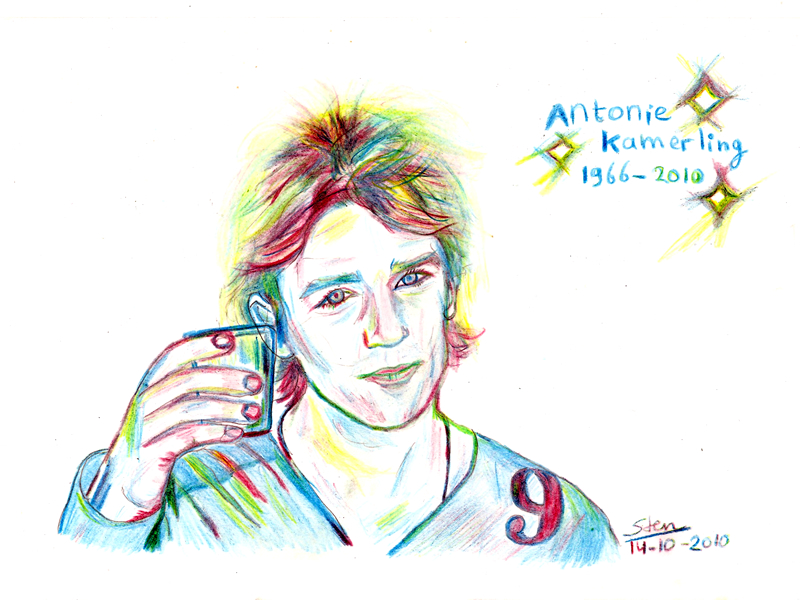 Antonie
Kamerling
1966-2010
9
Sten
14-10-2010